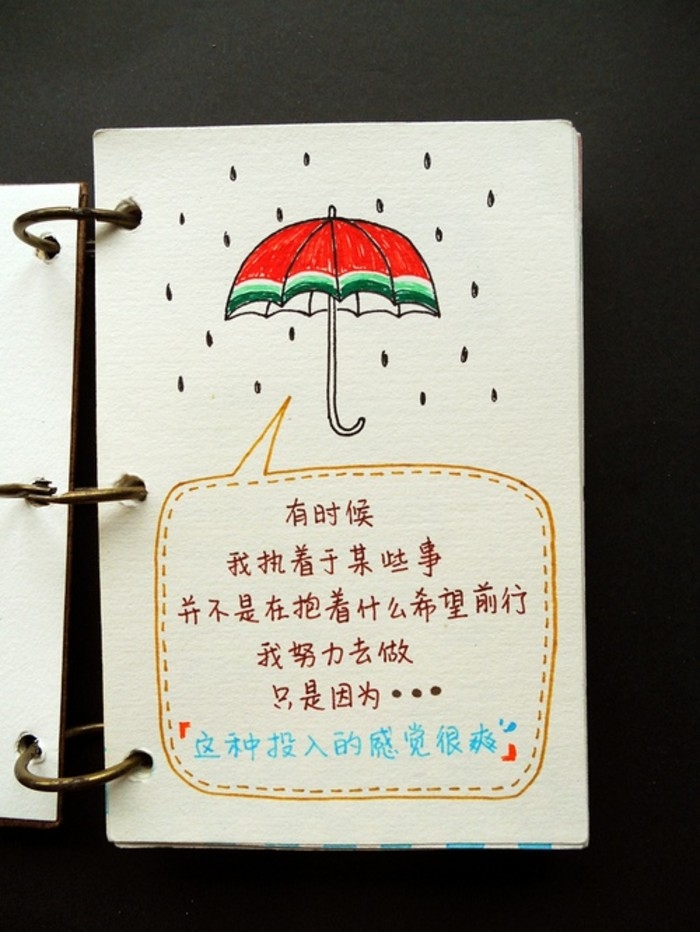 有时候
我执着于某些事
并不是在抱着什么希望前行
我努力去做
只是因为•••
「这种投入的感觉很爽」